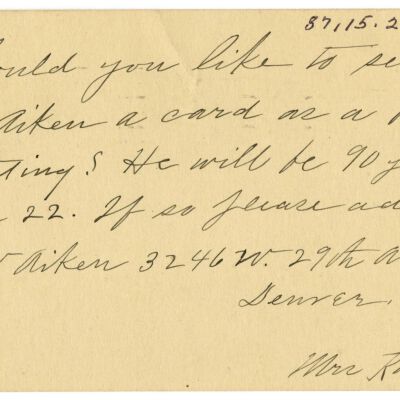 87,15.2
ould you like to se
Aiken a card as a
ting? He will be 90 y
22. If so please ad
Aiken 3246 W. 29th A
Denver.
Mrs K